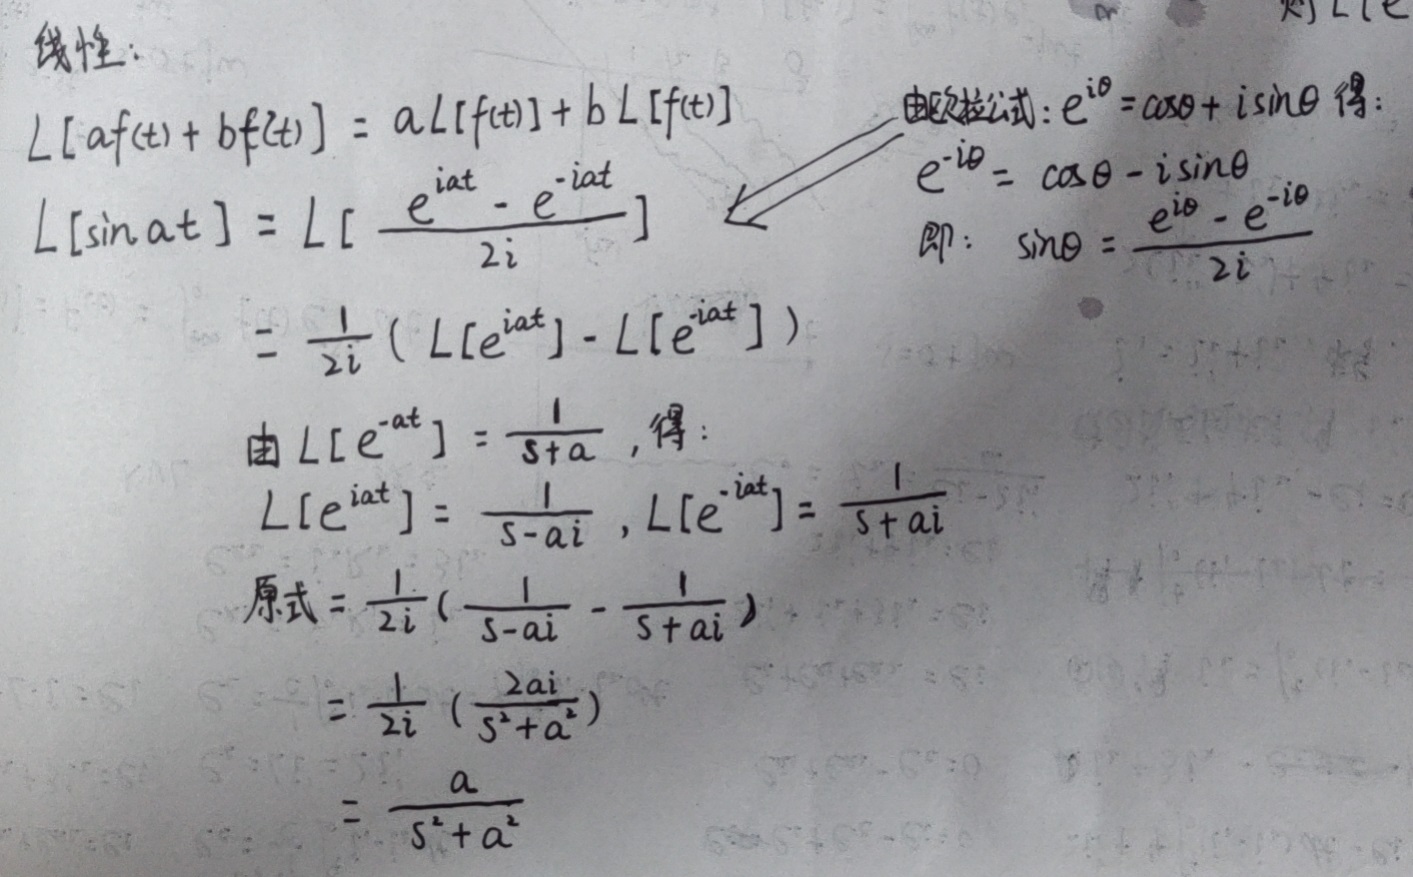 线性:
L[af(t) + bf(t)] = aL[f(t)] + bL[f(t)]
L[sin at] = L[(e^{iat} - e^{-iat})/(2i)]
= 1/(2i) (L[e^{iat}] - L[e^{-iat}])
由 L[e^{-at}] = 1/(s+a), 得:
L[e^{iat}] = 1/(s-ai), L[e^{-iat}] = 1/(s+ai)
原式 = 1/(2i) (1/(s-ai) - 1/(s+ai))
= 1/(2i) (2ai/(s²+a²))
= a/(s²+a²)
由欧拉公式: e^{iθ} = cosθ + i sinθ 得:
e^{-iθ} = cosθ - i sinθ
即: sinθ = (e^{iθ} - e^{-iθ})/(2i)
则 L[e